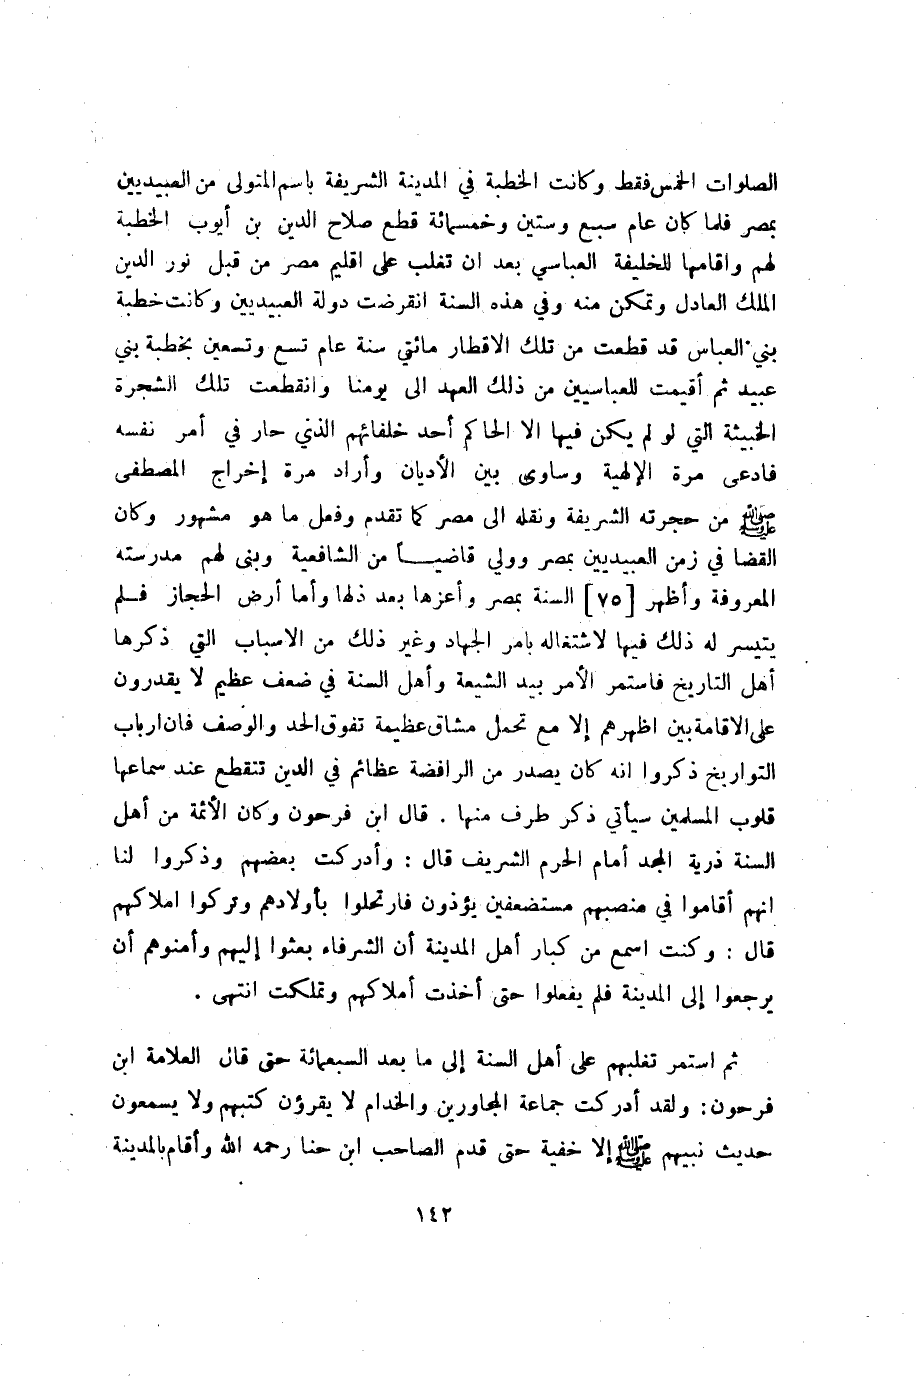 الصلوات الخمس فقط وكانت الخطبة في المدينة الشريفة باسم المتولى من العبيديين
بمصر فلما كان عام سبع وستين وخمسمائة قطع صلاح الدين بن أيوب الخطبة
لهم واقامها للخليفة العباسي بعد ان تغلب على اقليم مصر من قبل نور الدين
الملك العادل وتمكن منه وفي هذه السنة انقرضت دولة العبيديين وكانت خطبة
بني العباس قد قطعت من تلك الاقطار مائتي سنة عام تسع وتسعين بخطبة بني
عبيد ثم أقيمت للعباسيين من ذلك العهد الى يومنا وانقطعت تلك الشجرة
الخبيثة التي لو لم يكن فيها الا الحاكم أحد خلفائهم الذي حار في أمر نفسه
فادعى مرة الإلهية وساوى بين الأديان وأراد مرة إخراج المصطفى
ﷺ من حجرته الشريفة ونقله الى مصر كما تقدم وفعل ما هو مشهور وكان
القضا في زمن العبيديين بمصر وولي قاضيـــاً من الشافعية وبنى لهم مدرسته
المعروفة وأظهر [٧٥] السنة بمصر وأعزها بعد ذلها وأما أرض الحجاز فــلم
يتيسر له ذلك فيها لاشتغاله بامر الجهاد وغير ذلك من الاسباب التي ذكرها
أهل التاريخ فاستمر الأمر بيد الشيعة وأهل السنة في ضعف عظيم لا يقدرون
على الاقامة بين اظهرهم إلا مع تحمل مشاق عظيمة تفوق الحد والوصف فان ارباب
التواريخ ذكروا انه كان يصدر من الرافضة عظائم في الدين تتقطع عند سماعها
قلوب المسلمين سيأتي ذكر طرف منها . قال ابن فرحون وكان الأئمة من أهل
السنة ذرية المجد أمام الحرم الشريف قال : وأدركت بعضهم وذكروا لنا
انهم أقاموا في منصبهم مستضعفين يؤذون فارتحلوا بأولادهم وتركوا املاكهم
قال : وكنت اسمع من كبار أهل المدينة أن الشرفاء بعثوا إليهم وأمنوهم أن
يرجعوا إلى المدينة فلم يفعلوا حتى أخذت أملاكهم وتملكت انتهى .
ثم استمر تغلبهم على أهل السنة إلى ما بعد السبعمائة حتى قال العلامة ابن
فرحون: ولقد أدركت جماعة المجاورين والخدام لا يقرؤن كتبهم ولا يسمعون
حديث نبيهم ﷺ إلا خفية حتى قدم الصاحب ابن حنا رحمه الله وأقام بالمدينة
١٤٢